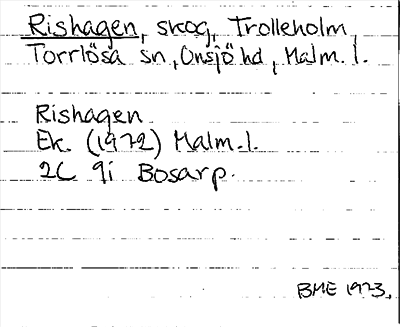 Rishagen, skog, Trolleholm,
Torrlösa sn, Onsjö hd, Malm. l.
Rishagen
Ek. (1972) Malm. l.
2C 9i Bosarp.
BME 1973.